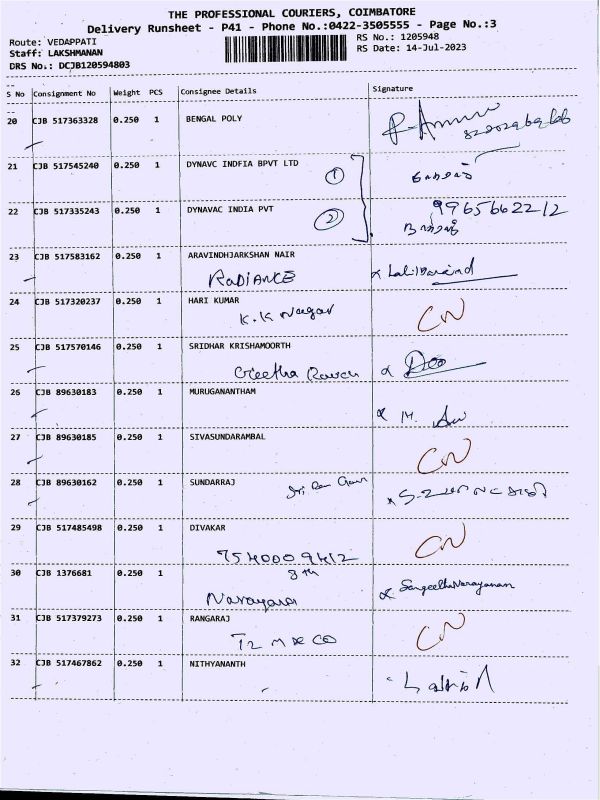 THE PROFESSIONAL COURIERS, COIMBATORE
Delivery Runsheet - P41 - Phone No.:0422-3505555 - Page No.:3
Route: VEDAPPATI
Staff: LAKSHMANAN
DRS No.: DCJB120594803
RS No.: 1205948
RS Date: 14-Jul-2023
S No Consignment No Weight PCS Consignee Details Signature
20 CJB 517363328 0.250 1 BENGAL POLY
21 CJB 517545240 0.250 1 DYNAVC INDFIA BPVT LTD
1
22 CJB 517335243 0.250 1 DYNAVAC INDIA PVT
2 9965662212
23 CJB 517583162 0.250 1 ARAVINDHJARKSHAN NAIR
RADIANCE
24 CJB 517320237 0.250 1 HARI KUMAR
K.K Nagar CN
25 CJB 517570146 0.250 1 SRIDHAR KRISHAMOORTH
Geetha
26 CJB 89630183 0.250 1 MURUGANANTHAM
27 CJB 89630185 0.250 1 SIVASUNDARAMBAL
CN
28 CJB 89630162 0.250 1 SUNDARRAJ
29 CJB 517485498 0.250 1 DIVAKAR
CN
7540009412
30 CJB 1376681 0.250 1 8th
Narayana SangeethaNarayanan
31 CJB 517379273 0.250 1 RANGARAJ
CN
32 CJB 517467862 0.250 1 NITHYANANTH